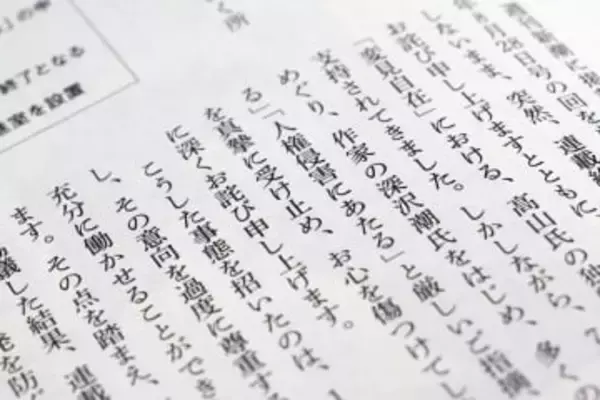 週刊新潮に掲
月28日号の回を
しないまま、突然、連載終
お詫び申し上げますとともに、
「変見自在」における、高山氏の独
支持されてきました。しかしながら、
めぐり、作家の深沢潮氏をはじめ、多く
る」「人権侵害にあたる」と厳しいご指摘、
を真摯に受け止め、お心を傷つけてし
に深くお詫び申し上げます。
こうした事態を招いたのは、
し、その意向を過度に尊重する
充分に働かせることができ
ます。その点を踏まえ、
した結果、連載
発を防
く所
の中
終了となる
室を設置